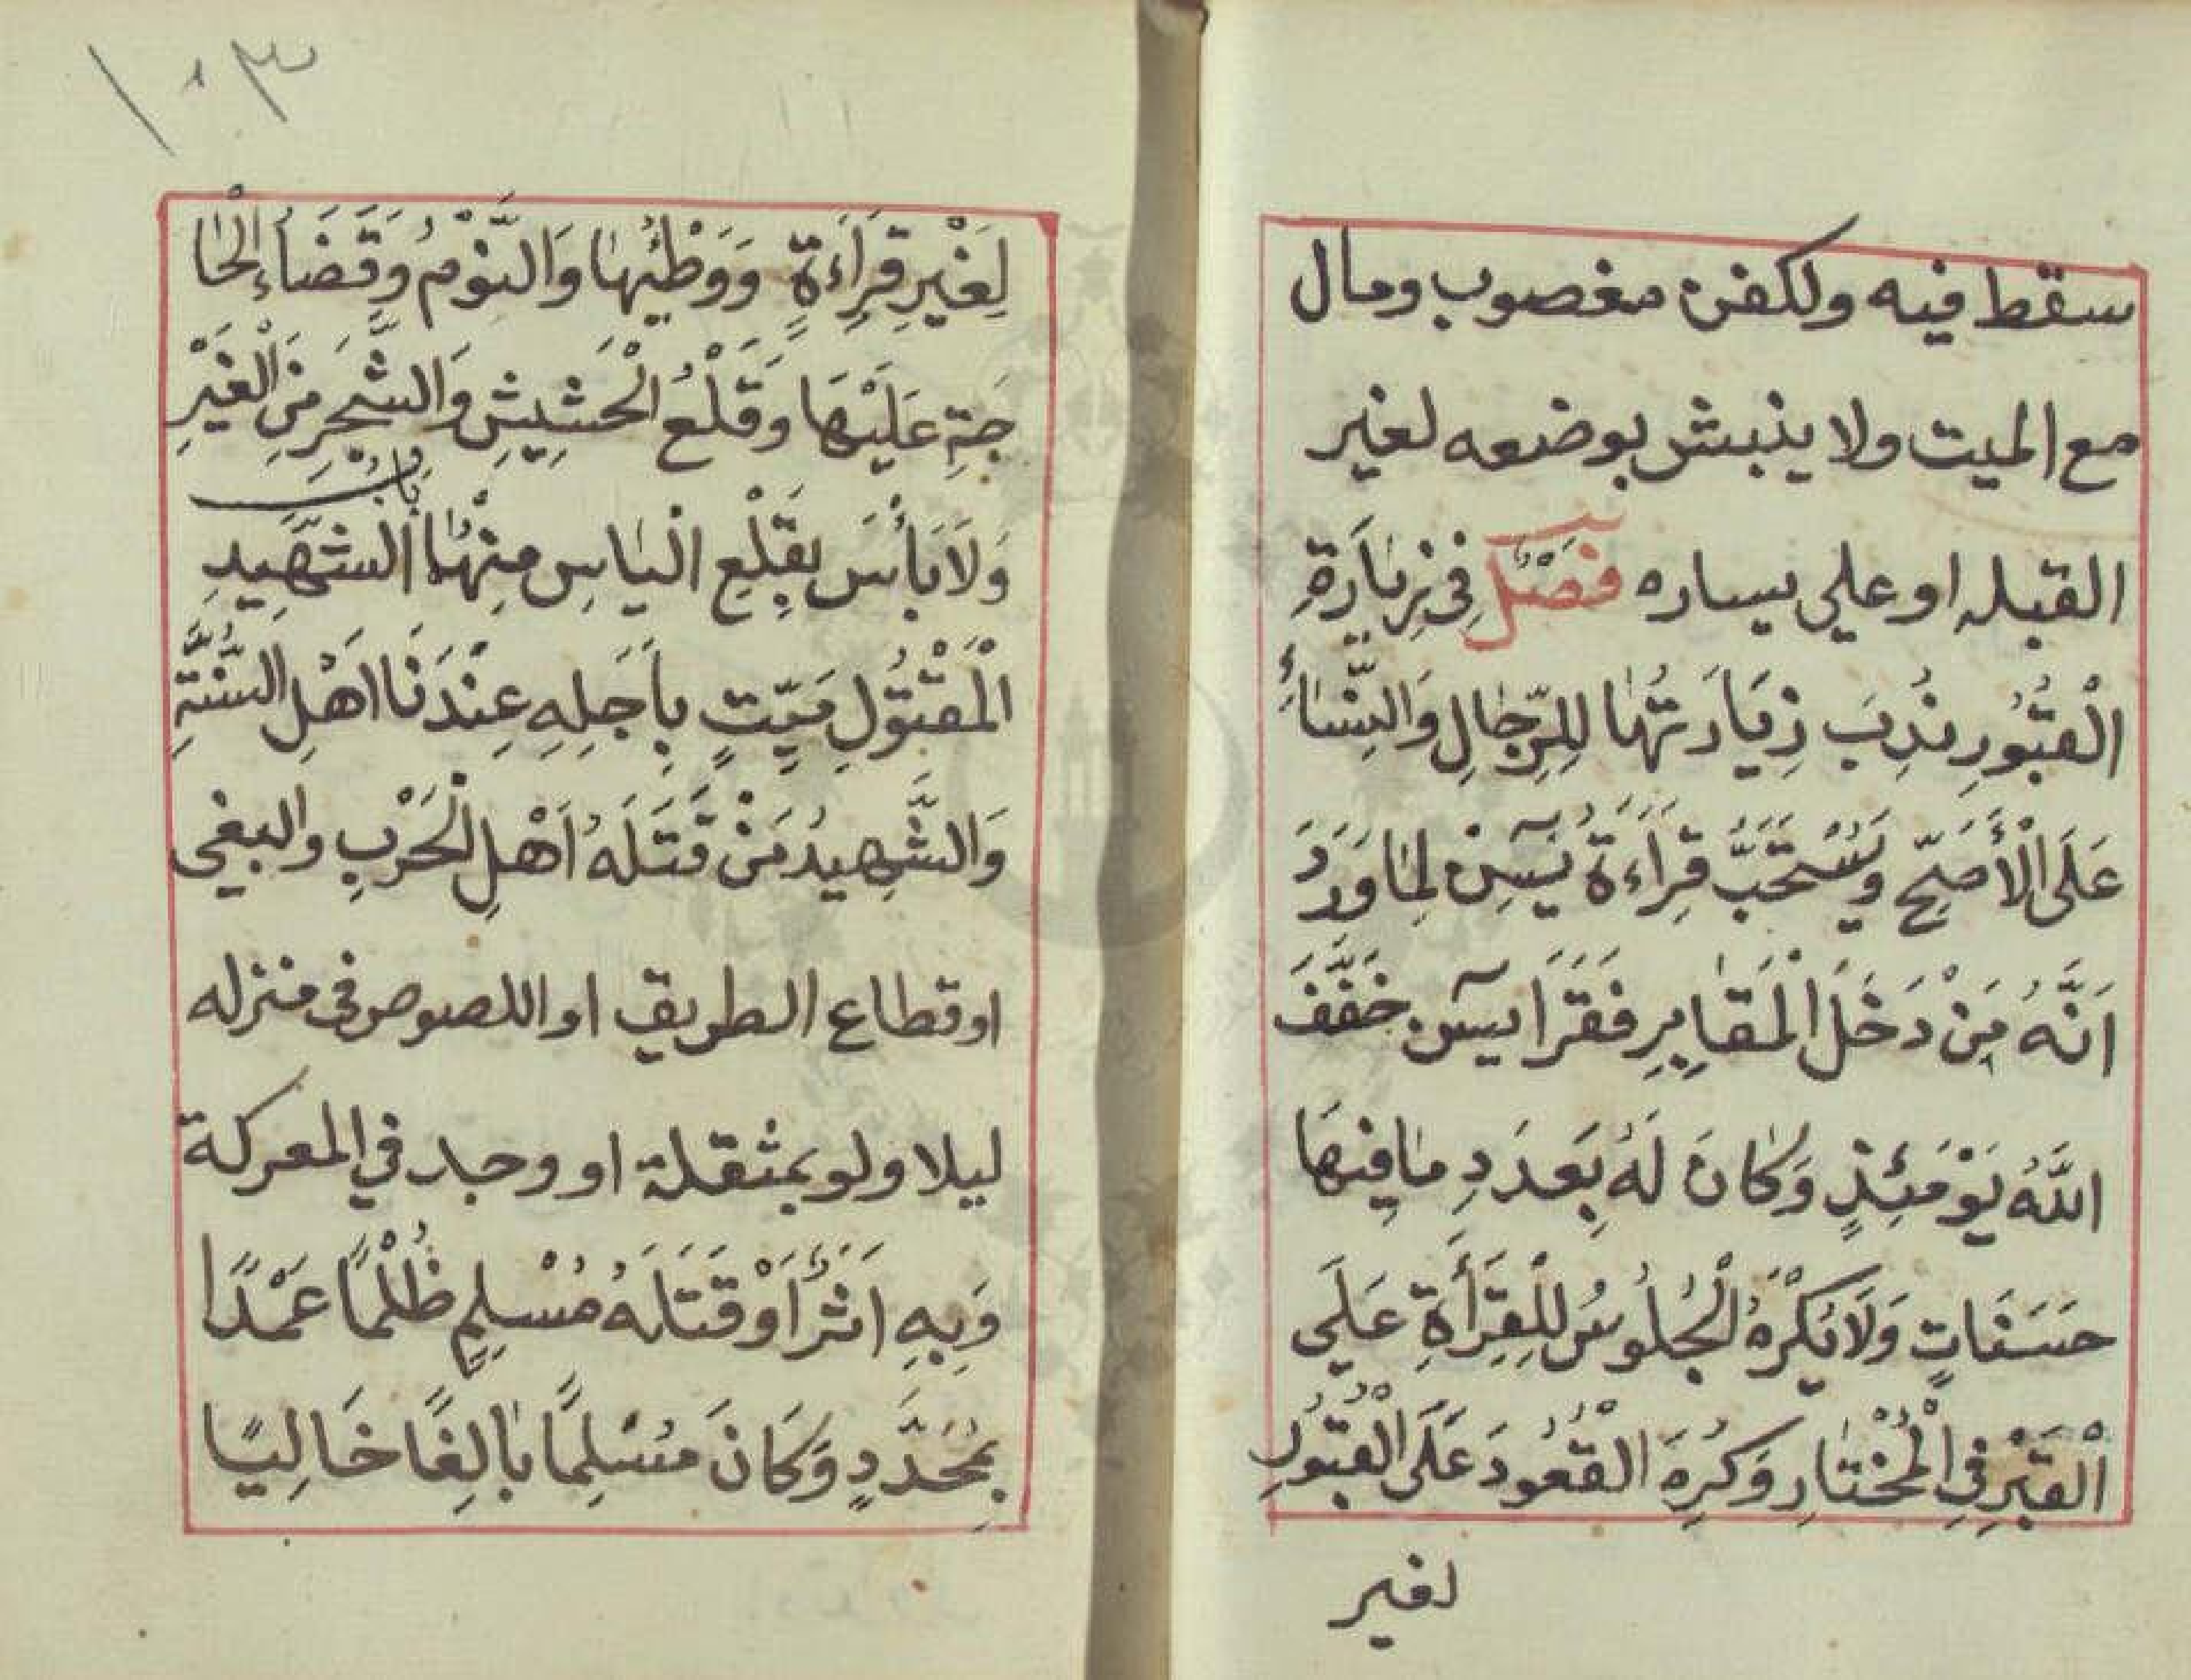 سقط فيه ولكفن مغصوب ومال
مع الميت ولا ينبش بوضعه لغير
القبله او علي يساره فَصْلٌ فِى زِيَارَةِ
الْقُبُورِ نُدِبَ زِيَارَتُهَا لِلرِّجَالِ وَالنِّسَاءِ
عَلَى الْأَصَحِّ وَيُسْتَحَبُّ قِرَاءَةُ يٓسٓ لِمَا وَرَدَ
اَنَّهُ مَنْ دَخَلَ الْمَقَابِرِ فَقَرَا يٓسٓ خَفَّفَ
اللّٰهُ يَوْمَئِذٍ وَكَانَ لَهُ بِعَدَدِ مَا فِيْهَا
حَسَنَاتٍ وَلَا يُكْرَهُ الْجُلُوسُ لِلْقِرَأَةِ عَلَى
الْقَبْرِ فِى الْمُخْتَارِ وَكُرِهَ الْقُعُودَ عَلَى الْقُبُورِ
لغير
١٠٣
لِغَيْرِ قِرَاءَةٍ وَوَطْئُهَا وَالنَّوْمُ وَقَضَاءُ الْحَا
جَةِ عَلَيْهَا وَقَلْعُ الْحَشِيْشِ وَالشَّجَرِ مِنَ الْغَيْرِ
وَلَا بَأْسَ بِقَلْعِ الْيَابِسِ مِنْهَا بَابُ الشَّهِيْدِ
الْمَقْتُوْلِ مَيِّتٍ بِاَجَلِهِ عِنْدَنَا اَهْلِ السُّنَّةِ
وَالشَّهِيدُ مَنْ قَتَلَهُ اَهْلِ الْحَرْبِ والبغى
او قطاع الطريق او اللصوص فى منزله
ليلا ولو بمثقلة او وجد في المعركة
وَبِهِ اَثَرٌ أَوْ قَتَلَهُ مُسْلِمٍ ظُلْمًا عَمْدًا
بِمُحَدَّدٍ وَكَانَ مُسْلِمًا بَالِغًا خَالِيًا